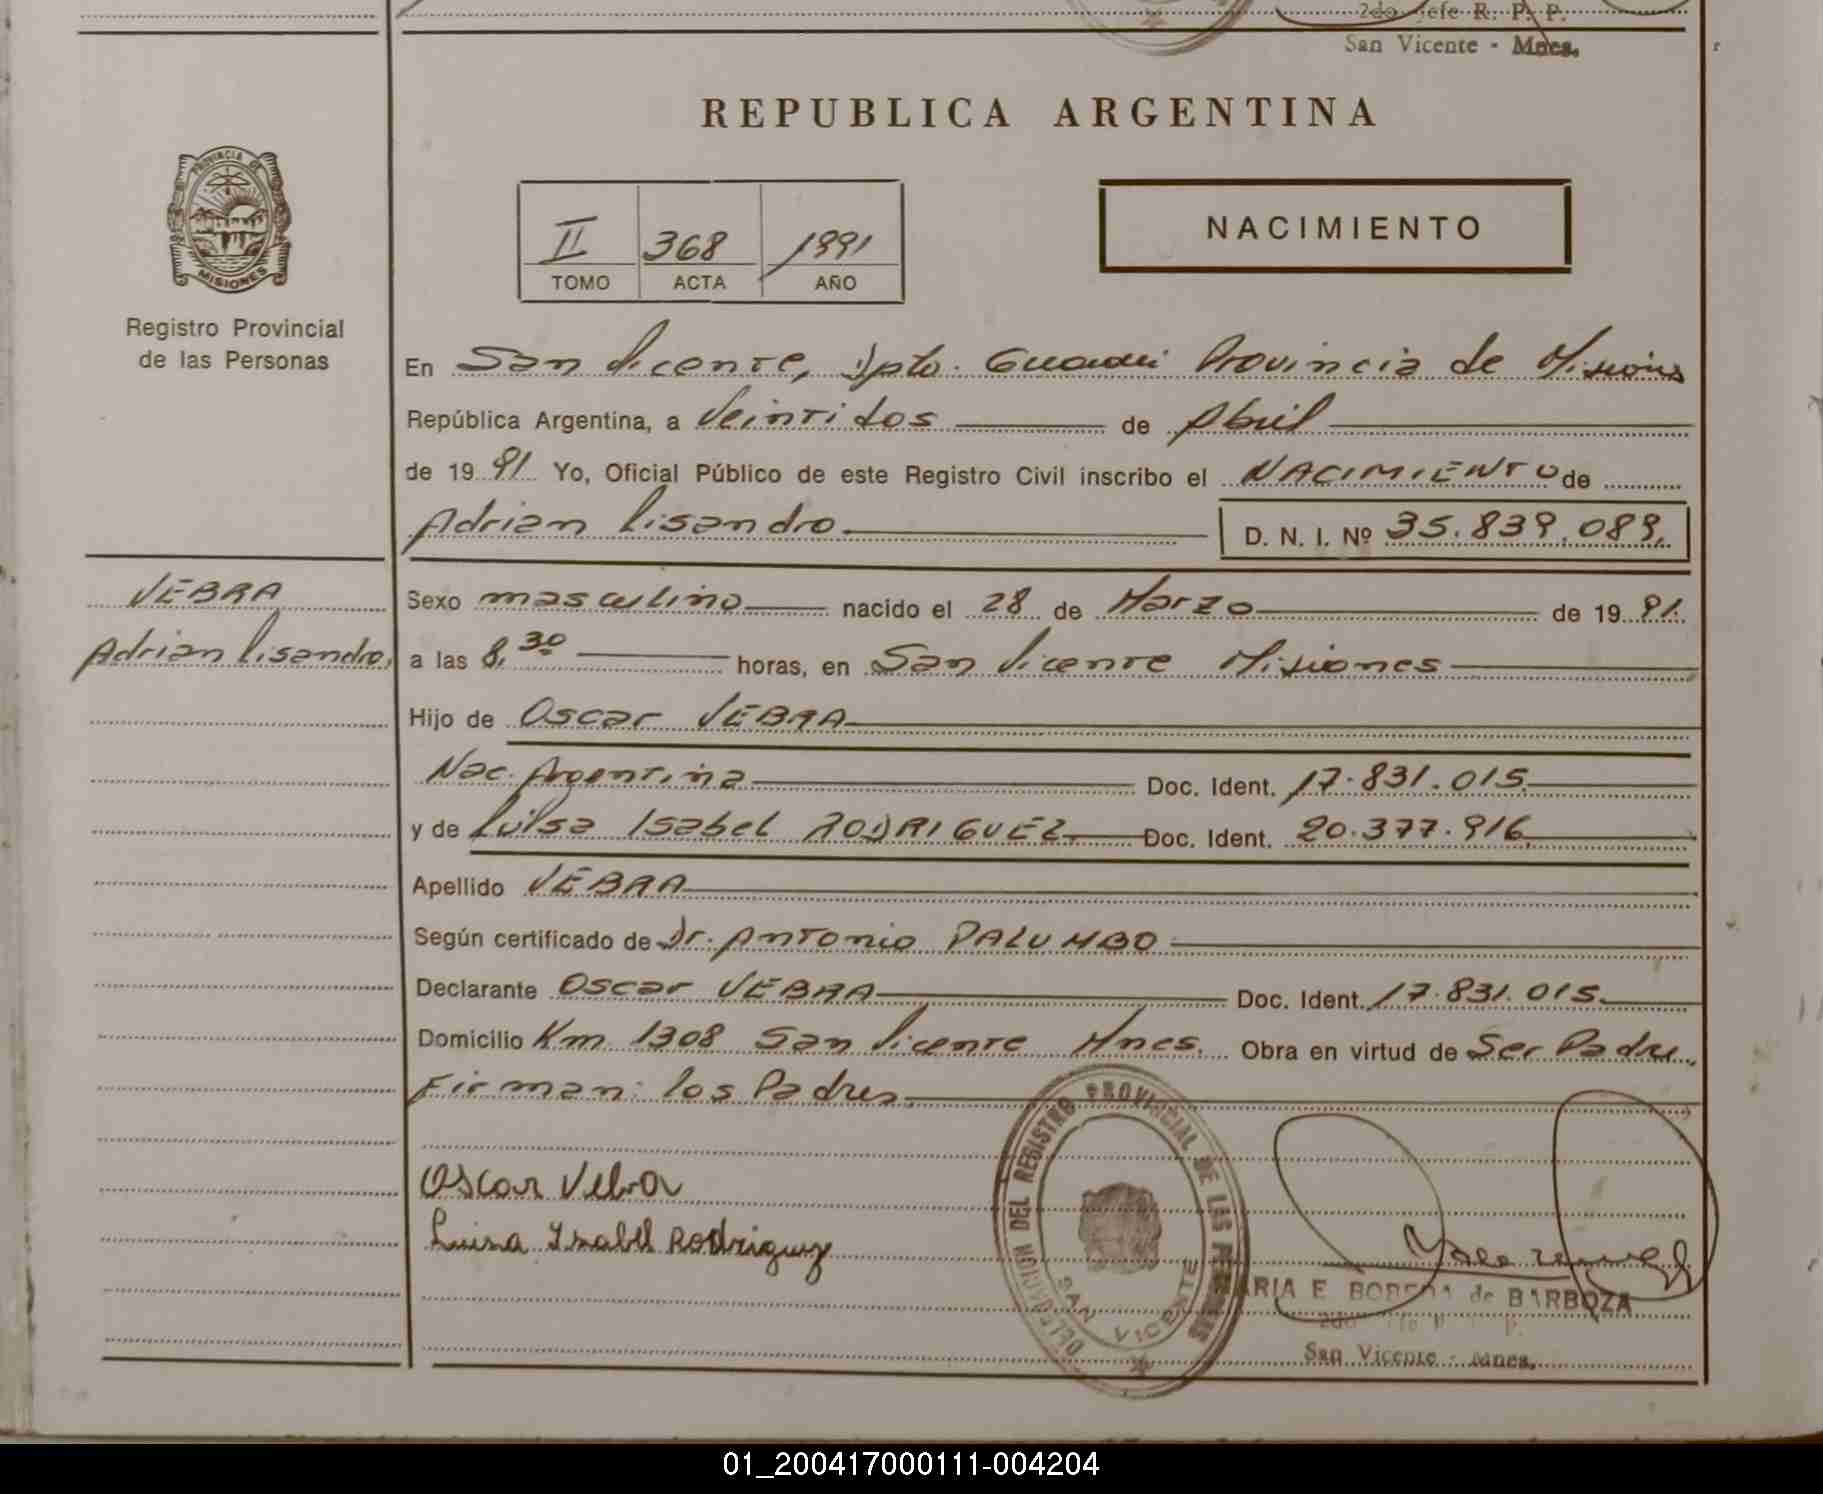 2do Jefe R. P. P.
San Vicente - Mnes.
REPUBLICA ARGENTINA
PROVINCIA DE
MISIONES
Registro Provincial
de las Personas
II 368 1991
TOMO ACTA AÑO
NACIMIENTO
En San Vicente, Dpto. Guaraní Provincia de Misiones
República Argentina, a Veintidos de Abril
de 1991 Yo, Oficial Público de este Registro Civil inscribo el NACIMIENTO de
Adrian Lisandro
D. N. I. Nº 35.839.089.
VEBRA
Adrian Lisandro.
Sexo masculino nacido el 28 de Marzo de 1991.
a las 8,30 horas, en San Vicente Misiones
Hijo de Oscar VEBRA
Nac. Argentina Doc. Ident. 17.831.015.
y de Luisa Isabel RODRIGUEZ Doc. Ident. 20.377.916
Apellido VEBRA
Según certificado de Dr. Antonio PALUMBO
Declarante Oscar VEBRA Doc. Ident. 17.831.015.
Domicilio Km 1308 San Vicente Mnes. Obra en virtud de Ser Padre.
Firman: los Padres.
Oscar Vebra
Luisa Ysabel Rodriguez
DELEGACION DEL REGISTRO PROVINCIAL DE LAS PERSONAS
SAN VICENTE
ARIA E. de BARBOZA
2do
San Vicente - Mnes.
01_200417000111-004204